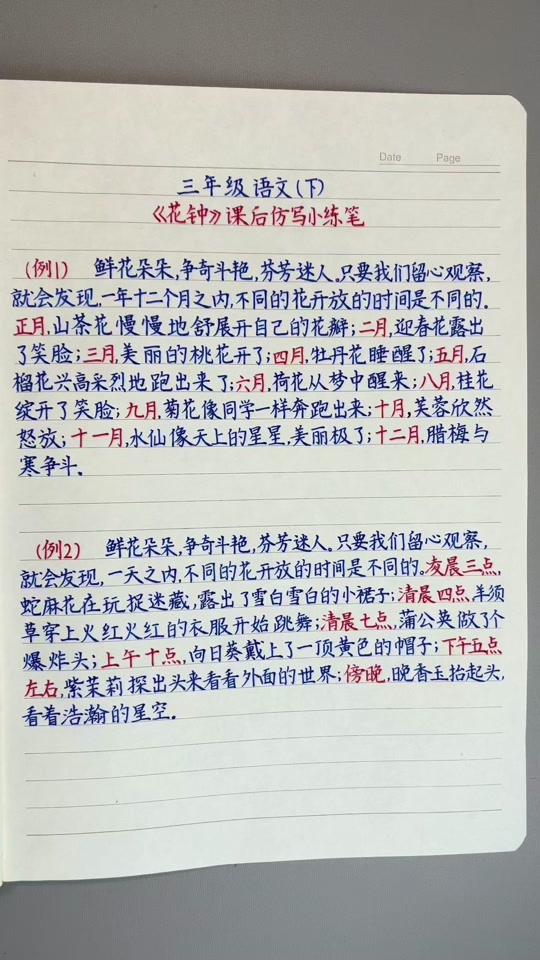 Date Page
三年级语文(下)
《花钟》课后仿写小练笔
(例1) 鲜花朵朵,争奇斗艳,芬芳迷人。只要我们留心观察,
就会发现,一年十二个月之内,不同的花开放的时间是不同的。
正月,山茶花慢慢地舒展开自己的花瓣;二月,迎春花露出
了笑脸;三月,美丽的桃花开了;四月,牡丹花睡醒了;五月,石
榴花兴高采烈地跑出来了;六月,荷花从梦中醒来;八月,桂花
绽开了笑脸;九月,菊花像同学一样奔跑出来;十月,芙蓉欣然
怒放;十一月,水仙像天上的星星,美丽极了;十二月,腊梅与
寒争斗。
(例2) 鲜花朵朵,争奇斗艳,芬芳迷人。只要我们留心观察,
就会发现,一天之内,不同的花开放的时间是不同的。凌晨三点,
蛇麻花在玩捉迷藏,露出了雪白雪白的小裙子;清晨四点,羊须
草穿上火红火红的衣服开始跳舞;清晨七点,蒲公英做了个
爆炸头;上午十点,向日葵戴上了一顶黄色的帽子;下午五点
左右,紫茉莉探出头来看看外面的世界;傍晚,晚香玉抬起头,
看着浩瀚的星空。